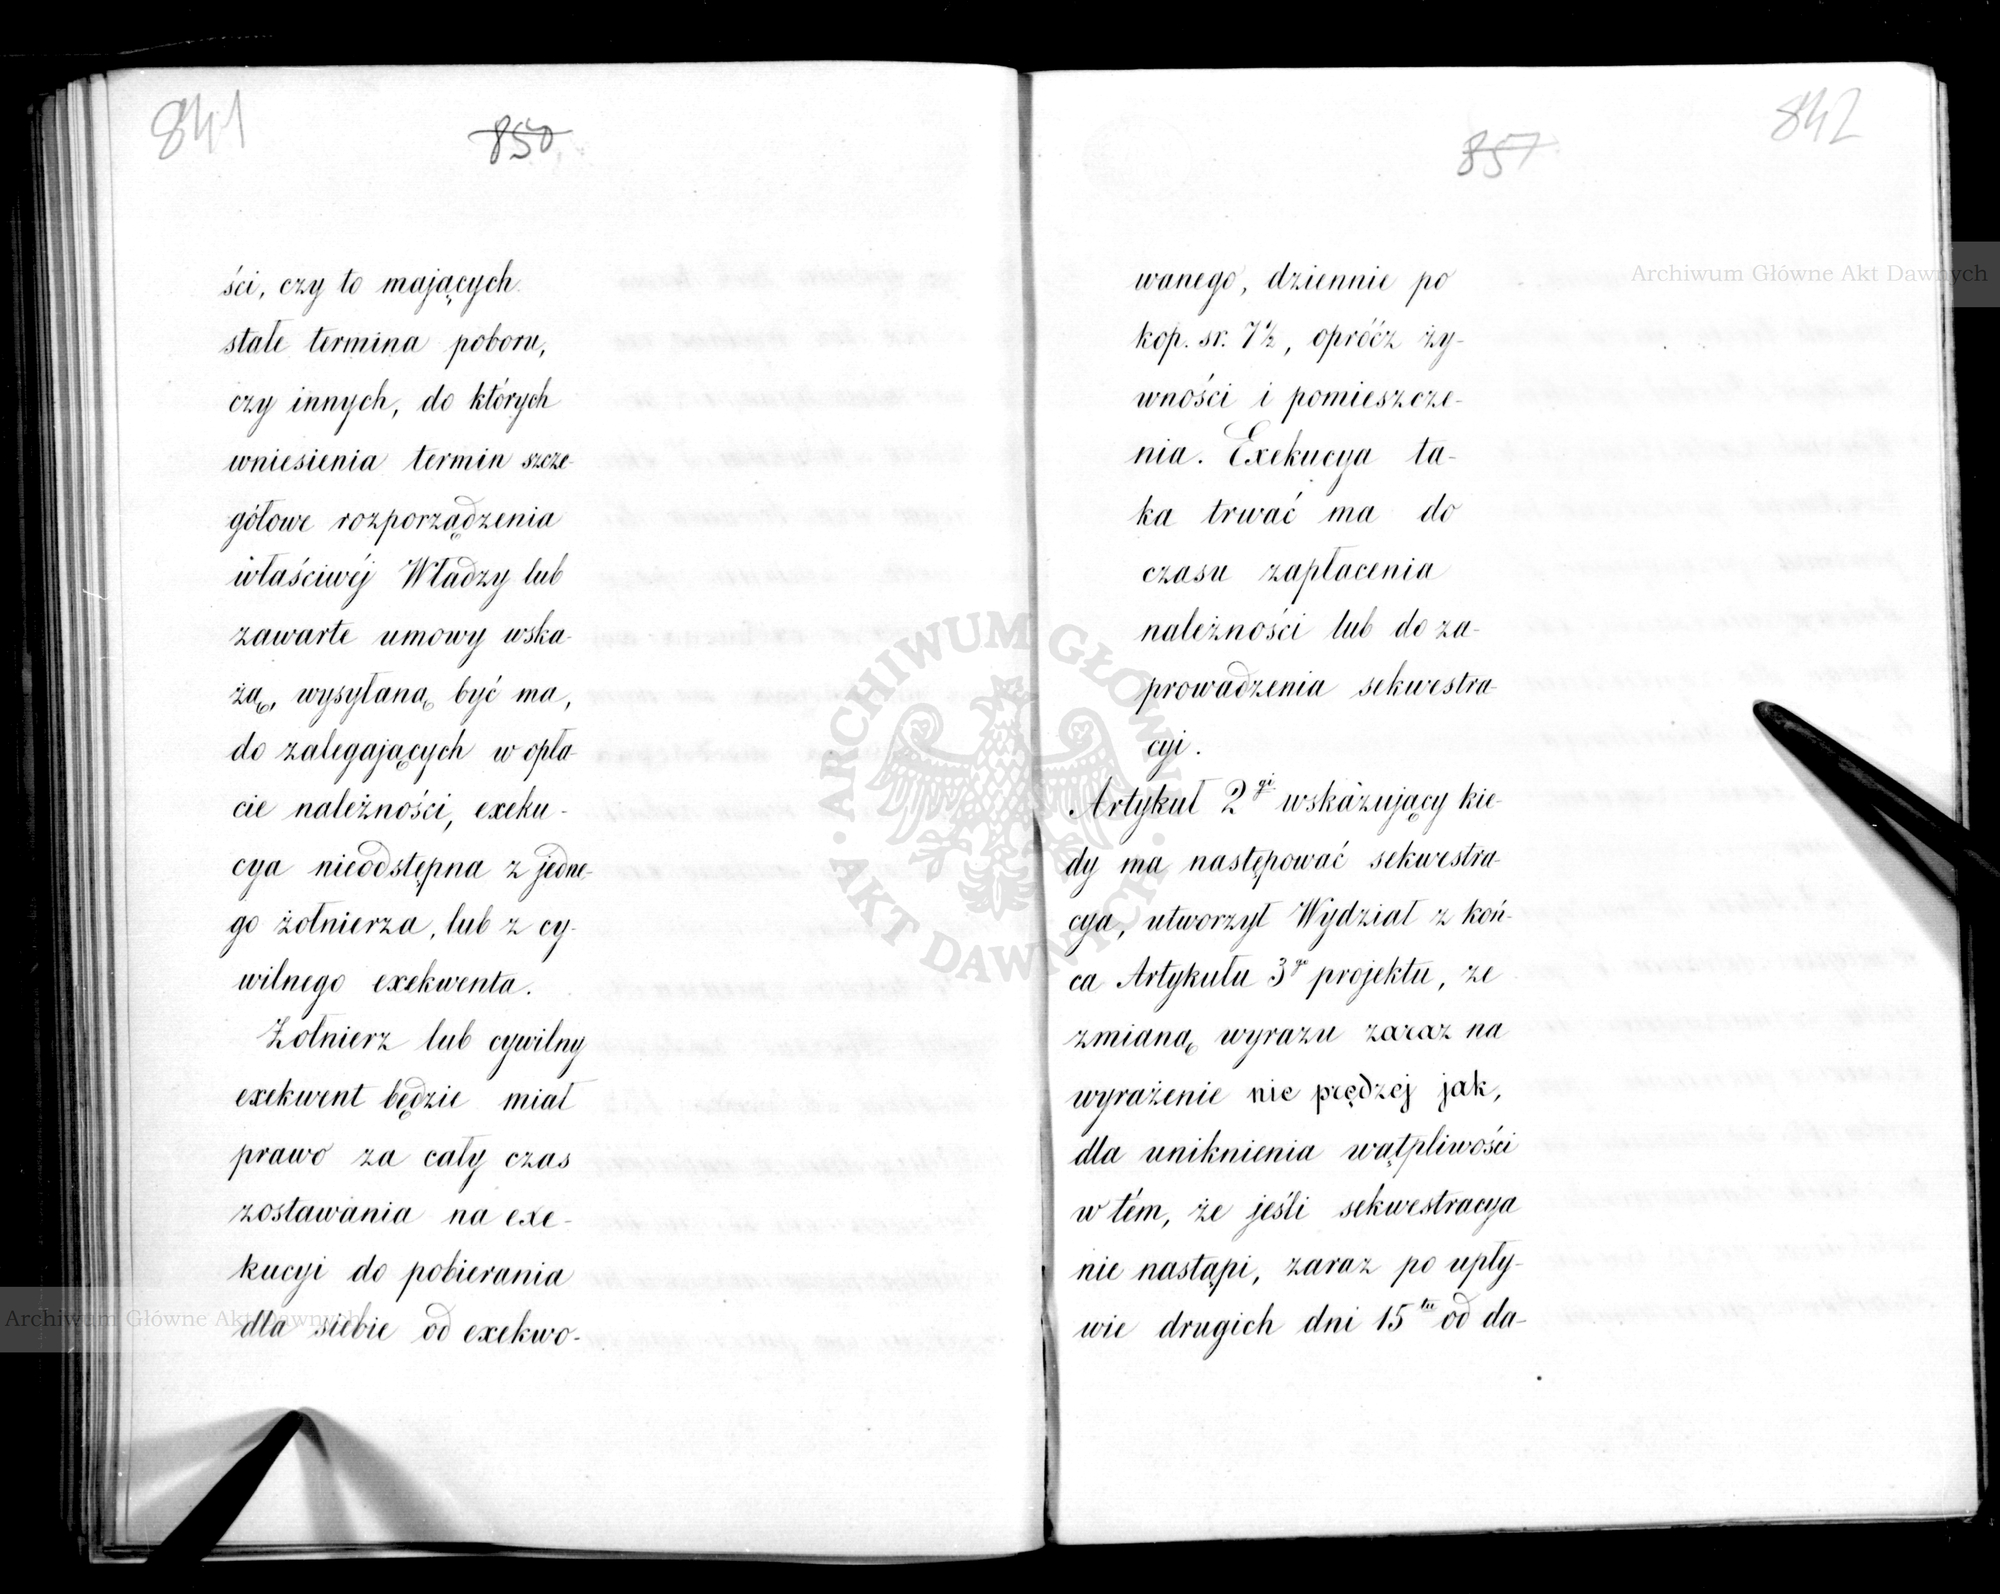 841
850
ści, czy to mających
stałe termina poboru,
czy innych, do których
wniesienia termin szcze-
gółowe rozporządzenia
właściwéj Władzy lub
zawarte umowy wska-
żą, wysyłaną być ma,
do zalegających w opła-
cie należności, exeku-
cya nieodstępna z jedne-
go żołnierza, lub z cy-
wilnego exekwenta.
Żołnierz lub cywilny
exekwent będzie miał
prawo za cały czas
zostawania na exe-
kucyi do pobierania
dla siebie od exekwo-
842
857
wanego, dziennie po
kop. sr. 7½, opróćz ży-
wności i pomieszcze-
nia. Exekucya ta-
ka trwać ma do
czasu zapłacenia
należności lub do za-
prowadzenia sekwestra-
cyi.
Artykuł 2gi wskazujący kie-
dy ma następować sekwestra-
cya, utworzył Wydział z koń-
ca Artykułu 3go projektu, ze
zmianą wyrazu zaraz na
wyrażenie nie prędzéj jak,
dla uniknienia wątpliwości
w tém, że jeśli sekwestracya
nie nastąpi, zaraz po upły-
wie drugich dni 15tu od da-
Archiwum Główne Akt Dawnych
ARCHIWUM GŁÓWNE AKT DAWNYCH
Archiwum Główne Akt Dawnych